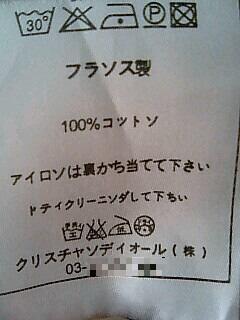 30°
フラソス製
100%コットソ
アイロソは裏かち当てて下さい
ドティクリーニンダして下ちい
クリスチャソディオール(株)
03-